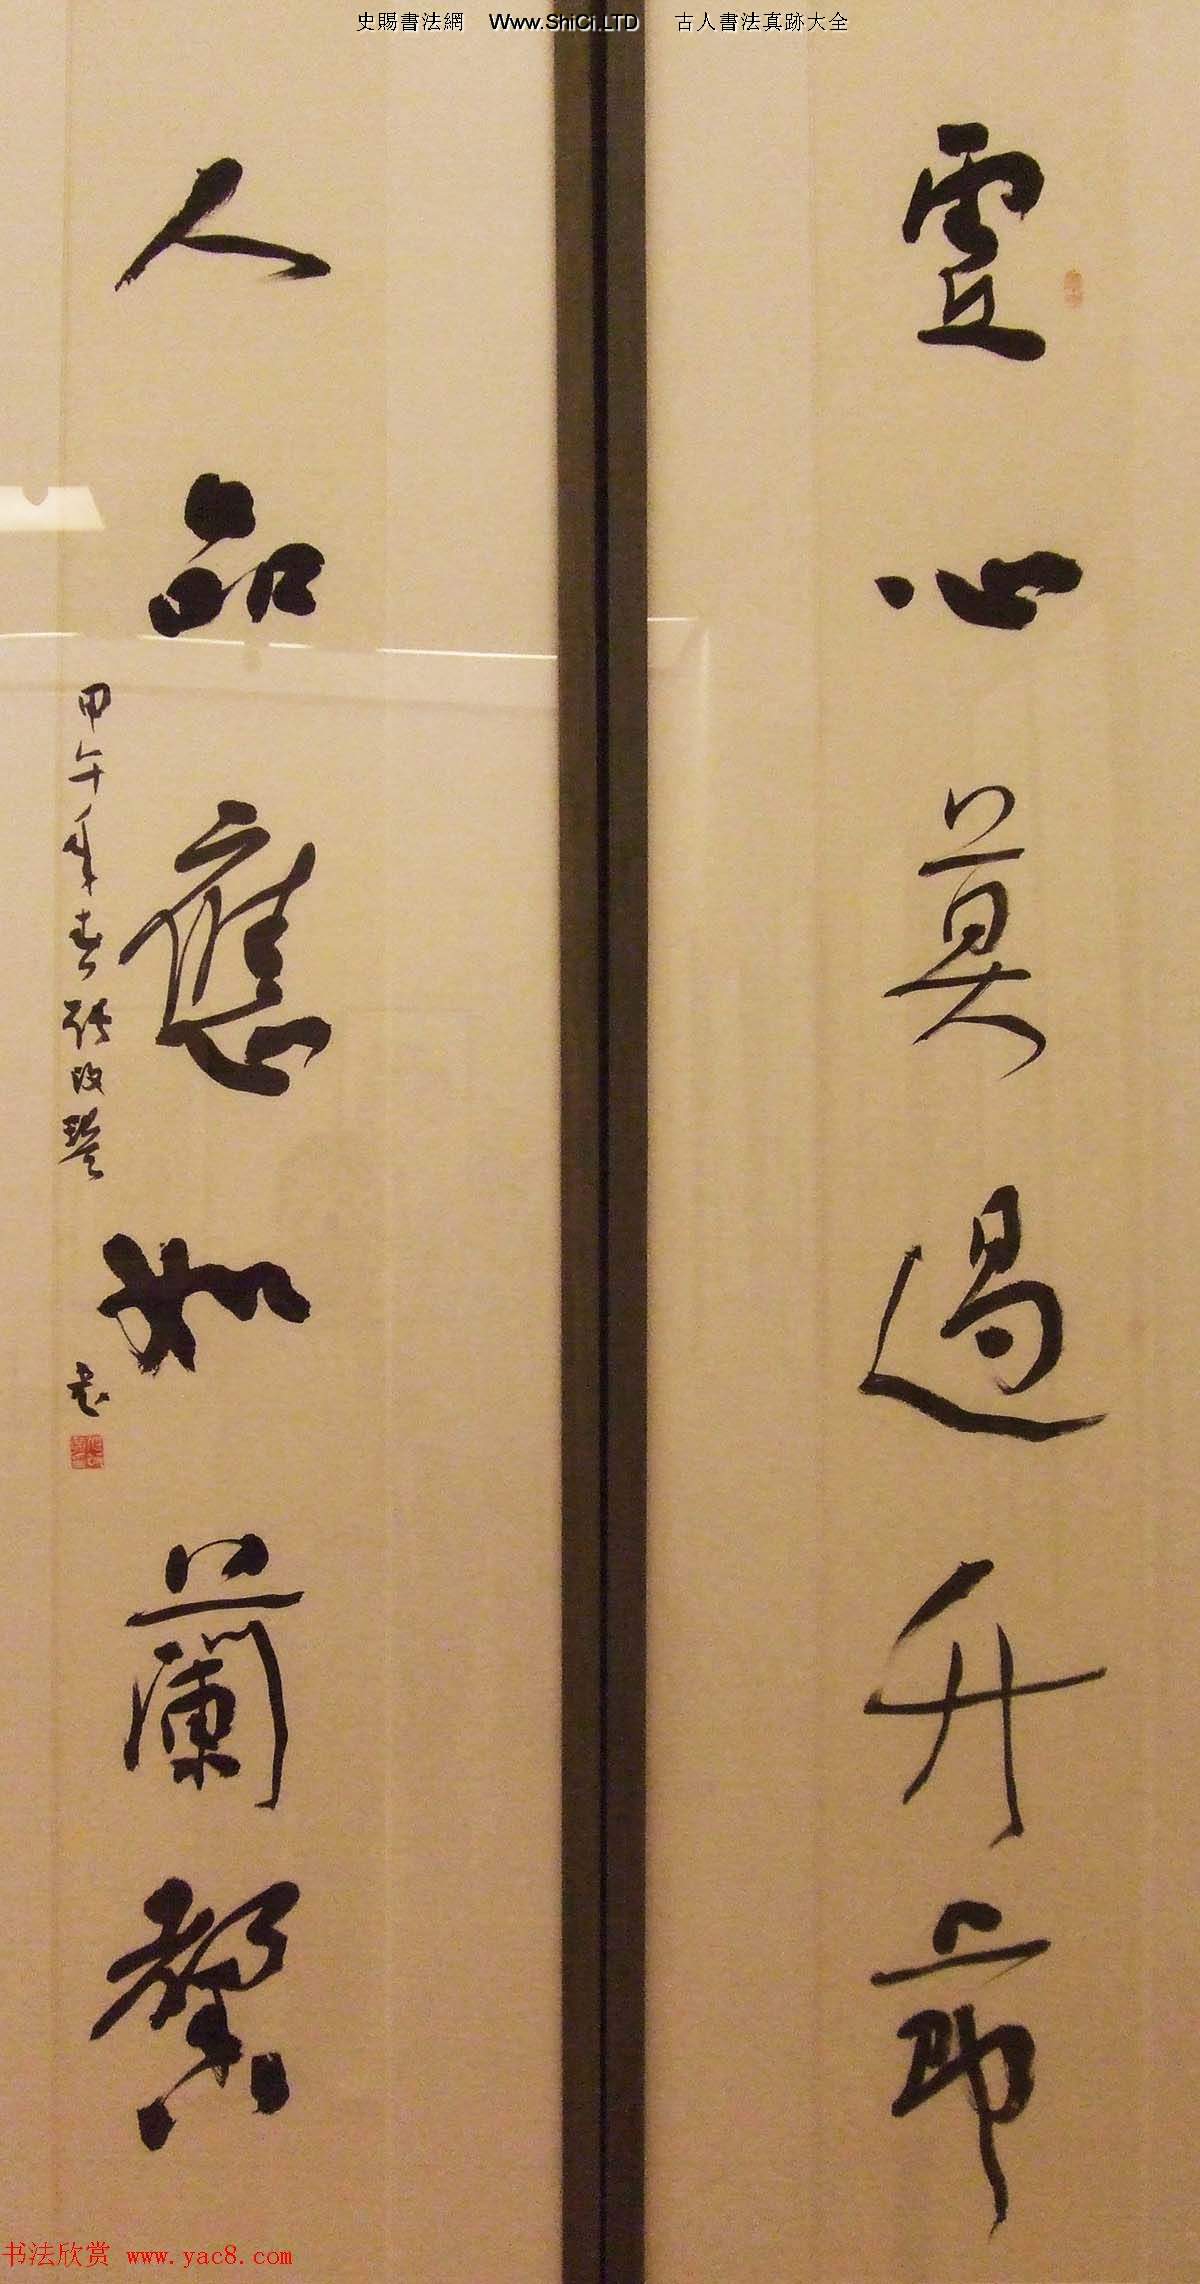 史賜書法網 Www.ShiCi.LTD 古人書法真跡大全
虛心莫過竹節
人品應如蘭馨
甲午年春張改琴書
书法欣赏 www.yac8.com